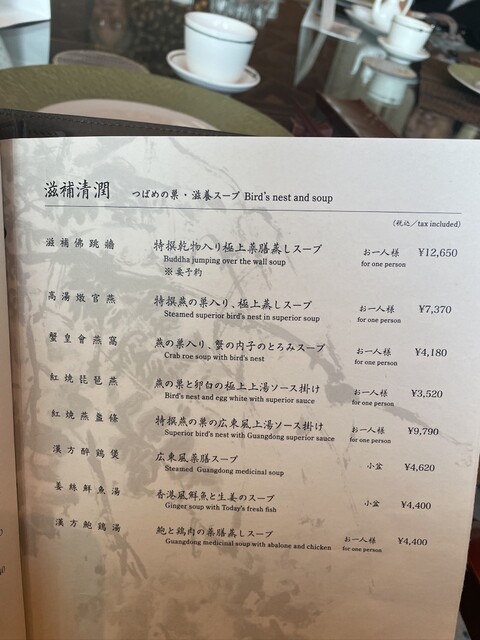 滋補清潤 つばめの巣・滋養スープ Bird's nest and soup
(税込/tax included)
滋補佛跳牆 特撰乾物入り極上薬膳蒸しスープ お一人様 ¥12,650
Buddha jumping over the wall soup for one person
※要予約
高湯燉官燕 特撰燕の巣入り、極上蒸しスープ お一人様 ¥7,370
Steamed superior bird's nest in superior soup for one person
蟹皇會燕窩 燕の巣入り、蟹の内子のとろみスープ お一人様 ¥4,180
Crab roe soup with bird's nest for one person
紅焼琵琶燕 燕の巣と卵白の極上上湯ソース掛け お一人様 ¥3,520
Bird's nest and egg white with superior sauce for one person
紅焼燕盞條 特撰燕の巣の広東風上湯ソース掛け お一人様 ¥9,790
Superior bird's nest with Guangdong superior sauce for one person
漢方醉鶏煲 広東風薬膳スープ 小盆 ¥4,620
Steamed Guangdong medicinal soup
姜絲鮮魚湯 香港風鮮魚と生姜のスープ 小盆 ¥4,400
Ginger soup with Today's fresh fish
漢方鮑鶏湯 鮑と鶏肉の薬膳蒸しスープ お一人様 ¥4,400
Guangdong medicinal soup with abalone and chicken for one person